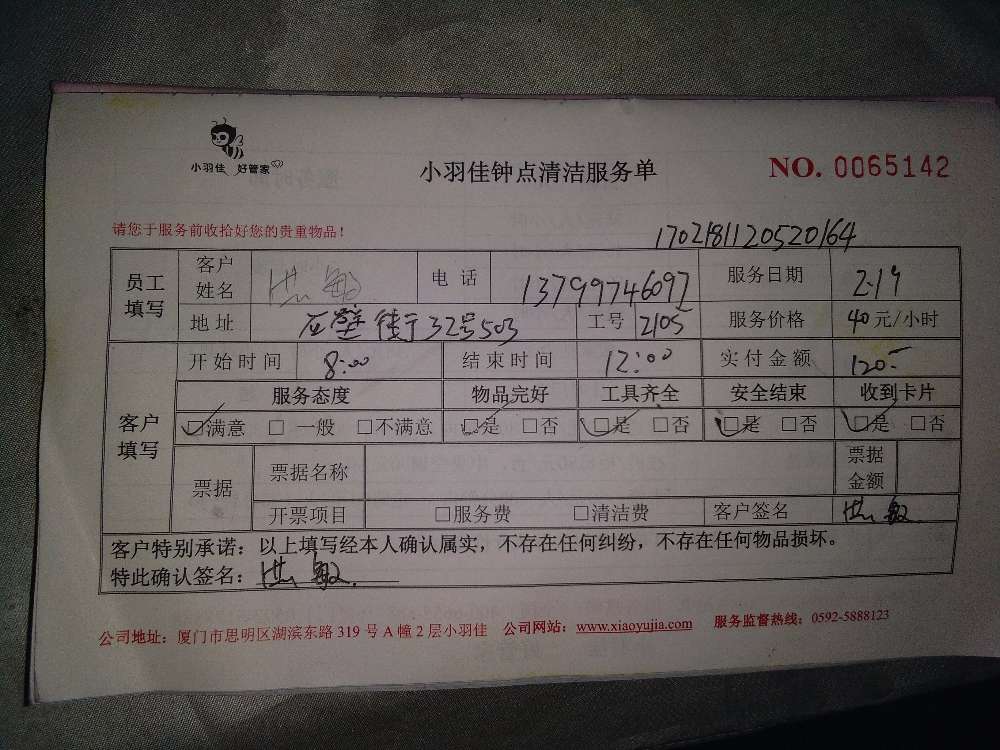 小羽佳 好管家
小羽佳钟点清洁服务单
NO. 0065142
请您于服务前收拾好您的贵重物品！
1702181120520164
员工填写 客户姓名 洪敏 电话 13799746097 服务日期 2.19
地址 街32号503 工号 2105 服务价格 40元/小时
客户填写 开始时间 8:00 结束时间 12:00 实付金额 120-
服务态度 物品完好 工具齐全 安全结束 收到卡片
☑满意 □一般 □不满意 ☑是 □否 ☑是 □否 ☑是 □否 ☑是 □否
票据 票据名称 票据金额
开票项目 □服务费 □清洁费 客户签名 洪敏
客户特别承诺：以上填写经本人确认属实，不存在任何纠纷，不存在任何物品损坏。
特此确认签名：洪敏
公司地址：厦门市思明区湖滨东路319号A幢2层小羽佳 公司网站：www.xiaoyujia.com 服务监督热线：0592-5888123